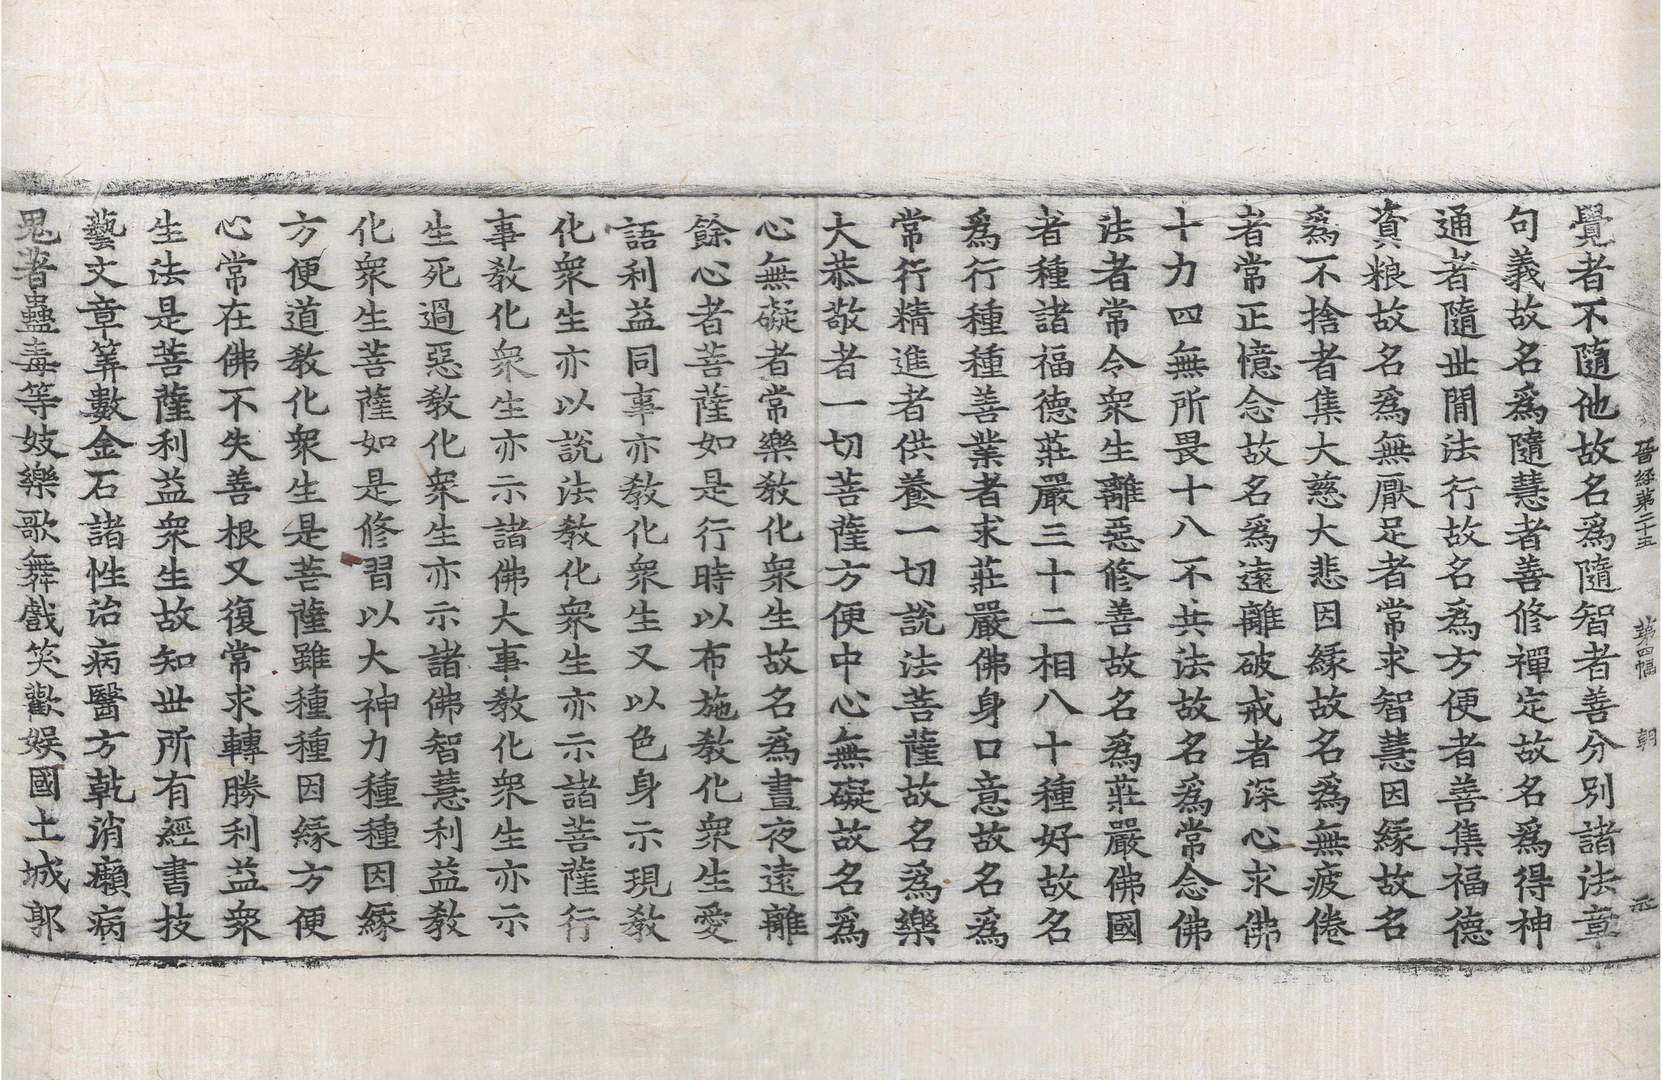 晉經第二十五 第四幅 朝
覺者不隨他故名爲隨智者善分別諸法章
句義故名爲隨慧者善修禪定故名爲得神
通者隨世閒法行故名爲方便者善集福德
資粮故名爲無厭足者常求智慧因緣故名
爲不捨者集大慈大悲因緣故名爲無疲倦
者常正憶念故名爲遠離破戒者深心求佛
十力四無所畏十八不共法故名爲常念佛
法者常令衆生離惡修善故名爲莊嚴佛國
者種諸福德莊嚴三十二相八十種好故名
爲行種種善業者求莊嚴佛身口意故名爲
常行精進者供養一切說法菩薩故名爲樂
大恭敬者一切菩薩方便中心無礙故名爲
心無礙者常樂教化衆生故名爲晝夜遠離
餘心者菩薩如是行時以布施教化衆生愛
語利益同事亦教化衆生又以色身示現教
化衆生亦以說法教化衆生亦示諸菩薩行
事教化衆生亦示諸佛大事教化衆生亦示
生死過惡教化衆生亦示諸佛智慧利益教
化衆生菩薩如是修習以大神力種種因緣
方便道教化衆生是菩薩雖種種因緣方便
心常在佛不失善根又復常求轉勝利益衆
生法是菩薩利益衆生故知世所有經書技
藝文章筭數金石諸性治病醫方乾消癩病
鬼著蠱毒等妓樂歌舞戲笑歡娛國土城郭